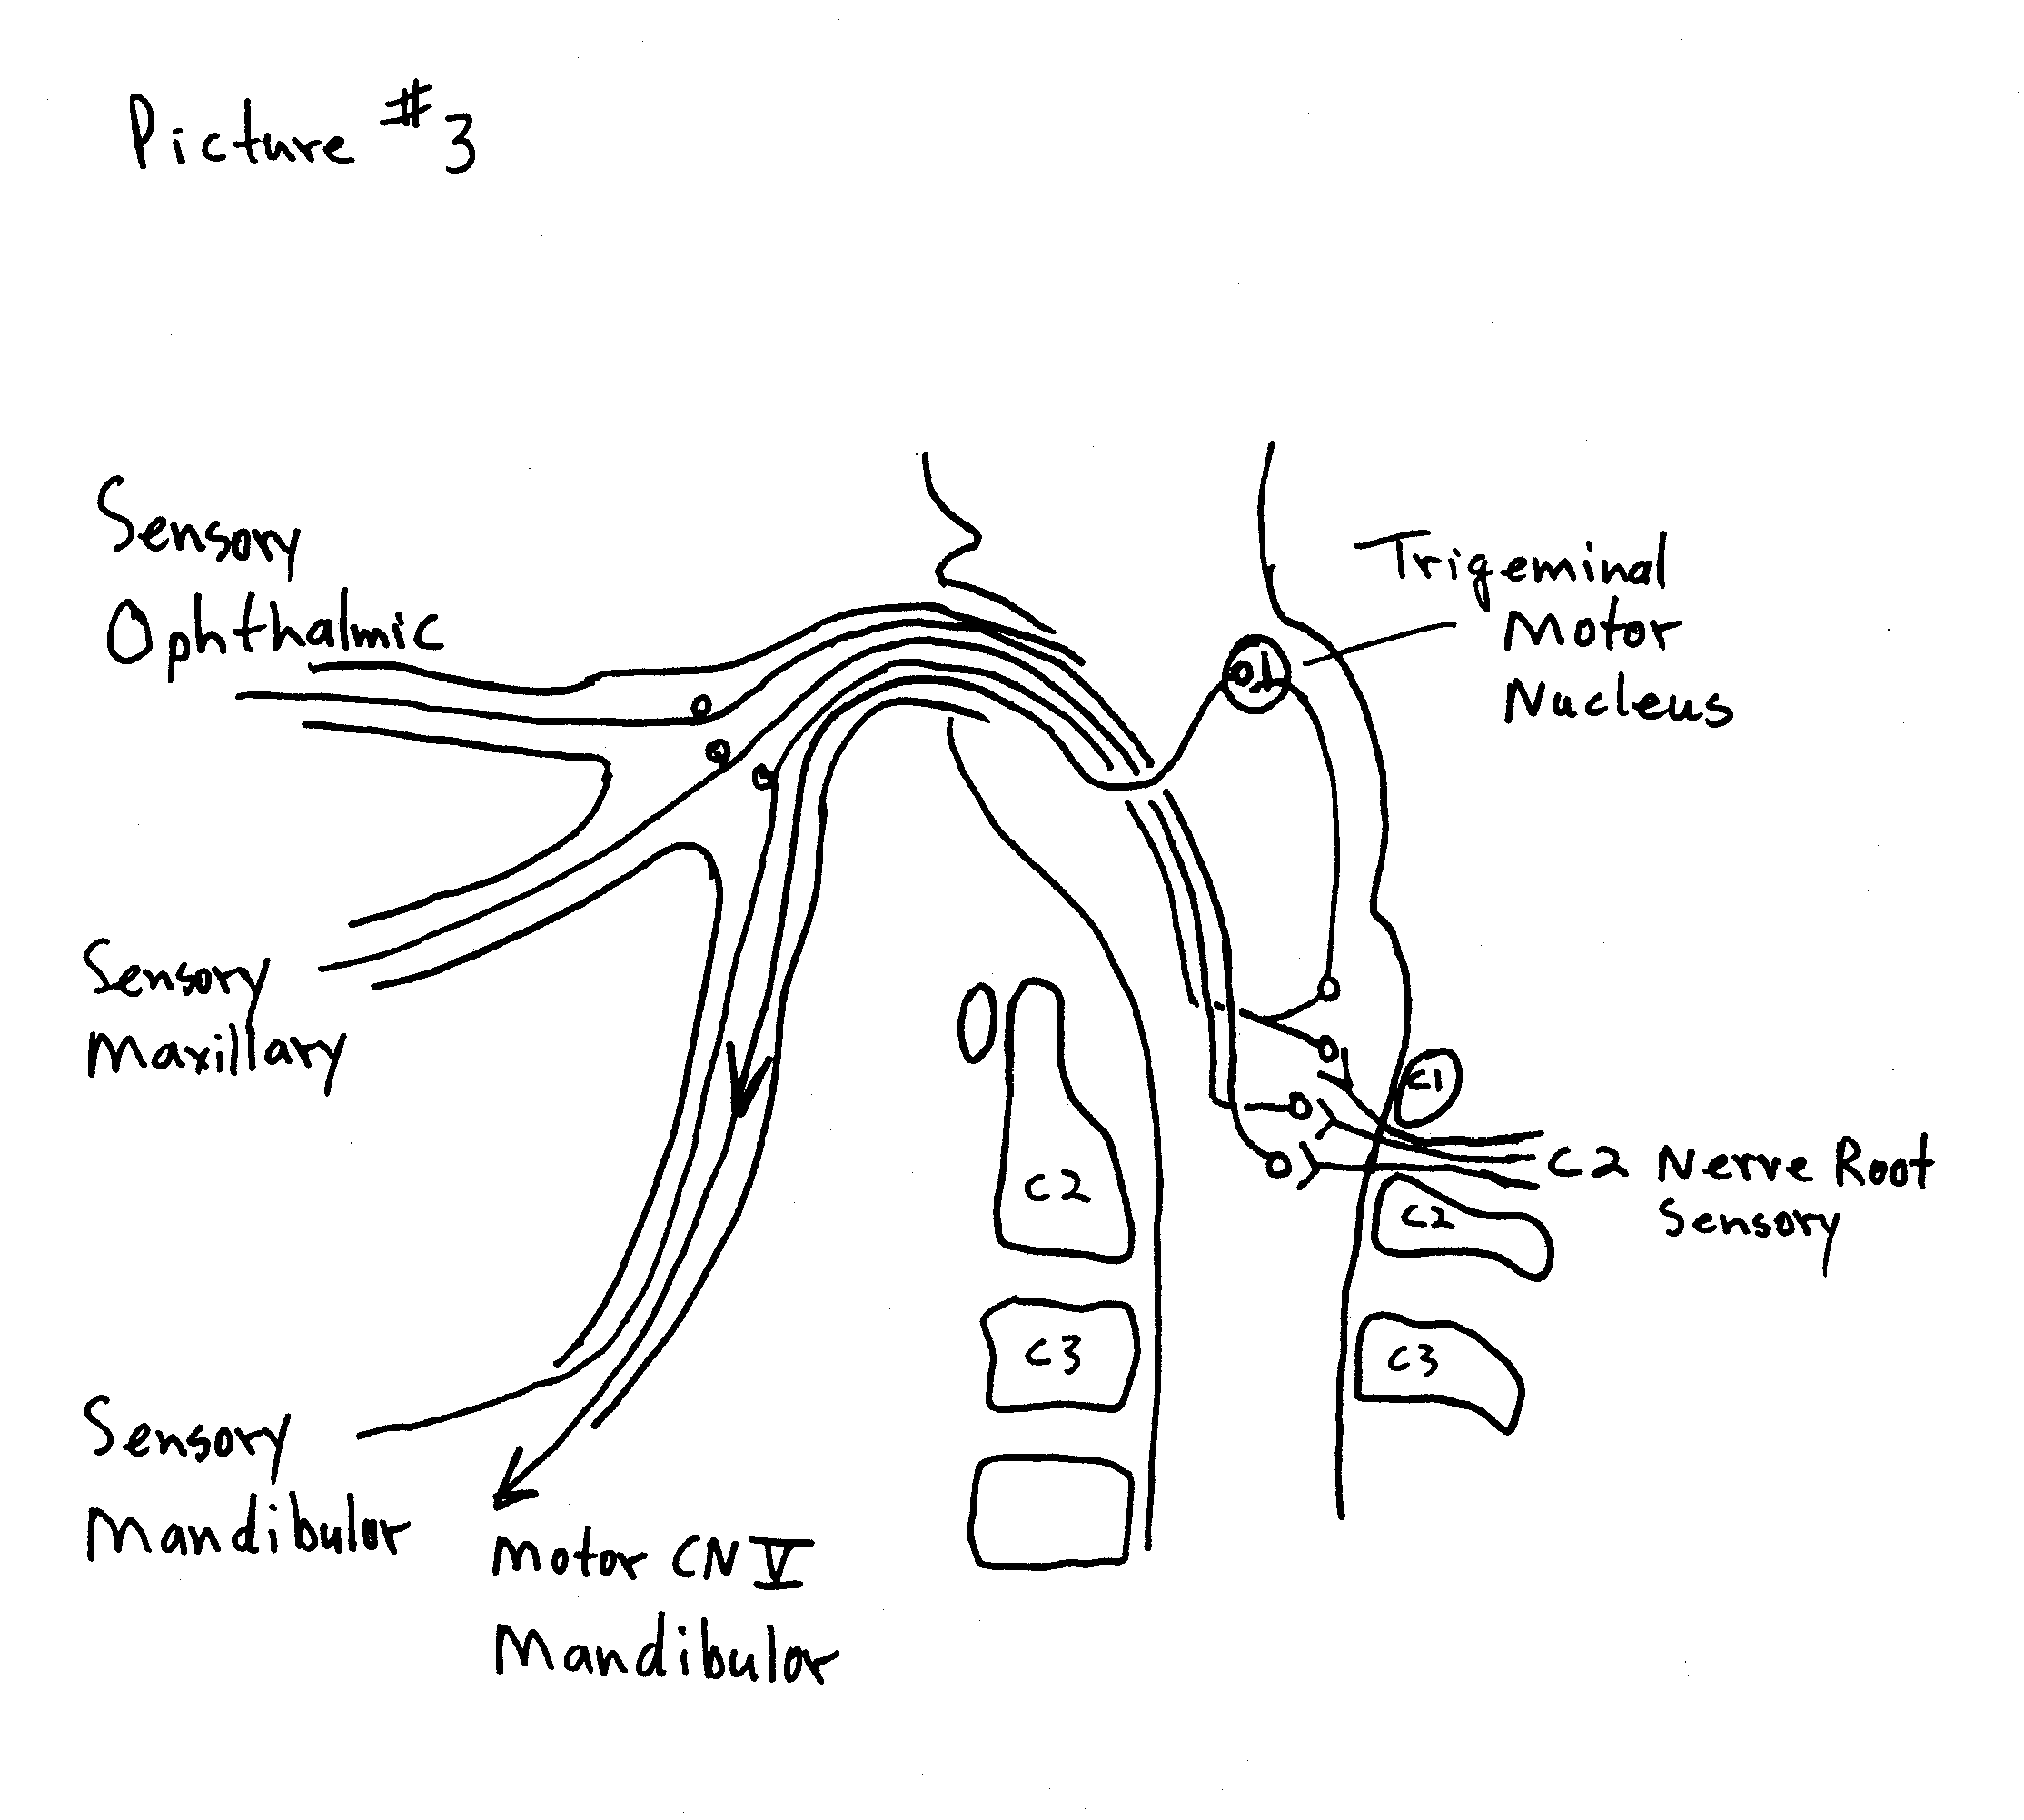 Picture #3
Sensory
Ophthalmic
Trigeminal
Motor
Nucleus
Sensory
Maxillary
C1
C2 Nerve Root
Sensory
C2
C2
C3
C3
Sensory
Mandibular
Motor CN V
Mandibular